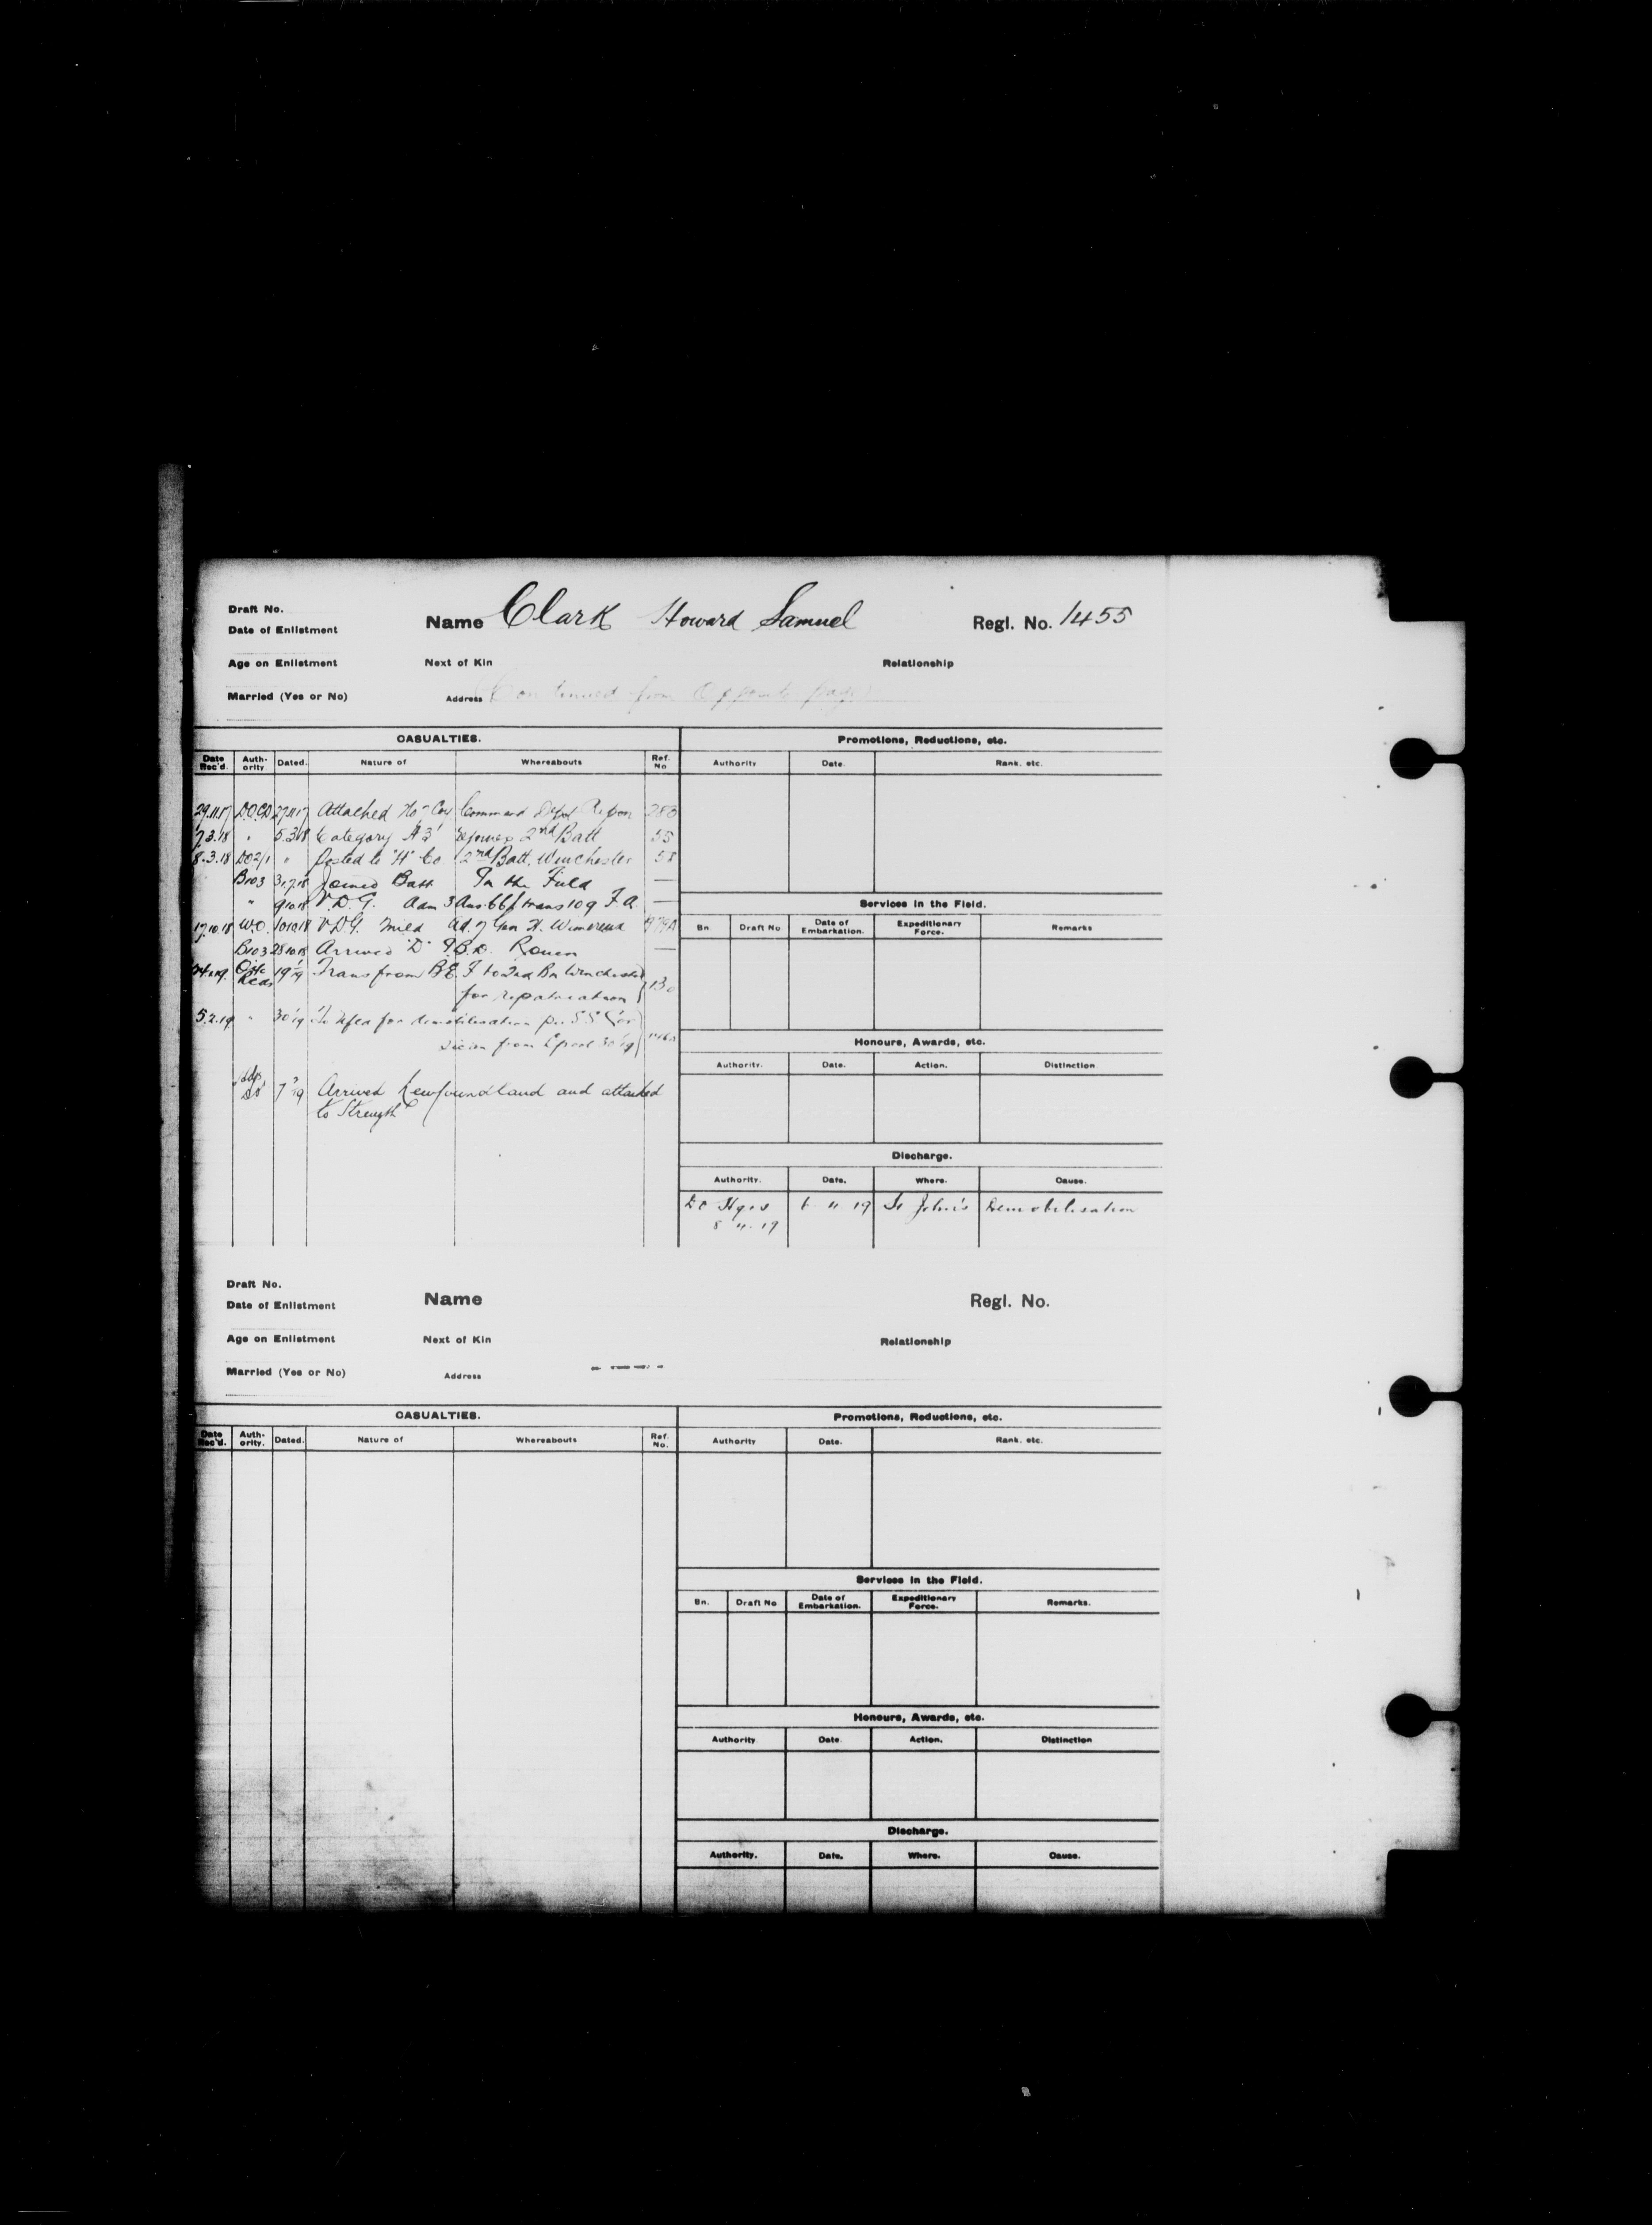 Draft No.
Date of Enlistment
Name Clark Howard Samuel
Regl. No. 1455
Age on Enlistment
Next of Kin
Relationship
Married (Yes or No)
Address Continued from Opposite page
CASUALTIES.
Date Rec'd. Auth-ority Dated. Nature of Whereabouts Ref. No
29.11.17 D.O.C.D 27.11.17 Attached "Ho" Coy Command Depot Ripon 283
7.3.18 " 5.3.18 Category A3' 2nd Batt 55
8.3.18 DO2/1 " Posted to "H" Co 2nd Batt. Winchester 58
B103 Joined Batt In the Field —
" 9.10.18 V.D.G. Adm 3 Aus. trans 10 9 F.A. —
17.10.18 W.O. 10.10.18 V.D.G. Mild Ad. 7 Gen H. Wimereux
B103 28.10.18 Arrived "D" I.B.D. Rouen —
19 1/19 Trans from B.E.F to 2nd Bn Winchester
for repatriation
5.2.19 " 30 1/19 for demobilisation per S.S.
from L'pool 30 1/19
7 2/19 Arrived Newfoundland and attached
to Strength
Promotions, Reductions, etc.
Authority Date. Rank. etc.
Services in the Field.
Bn Draft No Date of Embarkation. Expeditionary Force. Remarks
Honours, Awards, etc.
Authority. Date. Action. Distinction
Discharge.
Authority. Date. Where. Cause.
19 St John's Demobilisation
8 19
Draft No.
Date of Enlistment
Name
Regl. No.
Age on Enlistment
Next of Kin
Relationship
Married (Yes or No)
Address
CASUALTIES.
Date Rec'd. Auth-ority. Dated. Nature of Whereabouts Ref. No.
Promotions, Reductions, etc.
Authority Date. Rank. etc.
Services in the Field.
Bn. Draft No Date of Embarkation. Expeditionary Force. Remarks.
Honours, Awards, etc.
Authority Date. Action. Distinction
Discharge.
Authority. Date. Where. Cause.